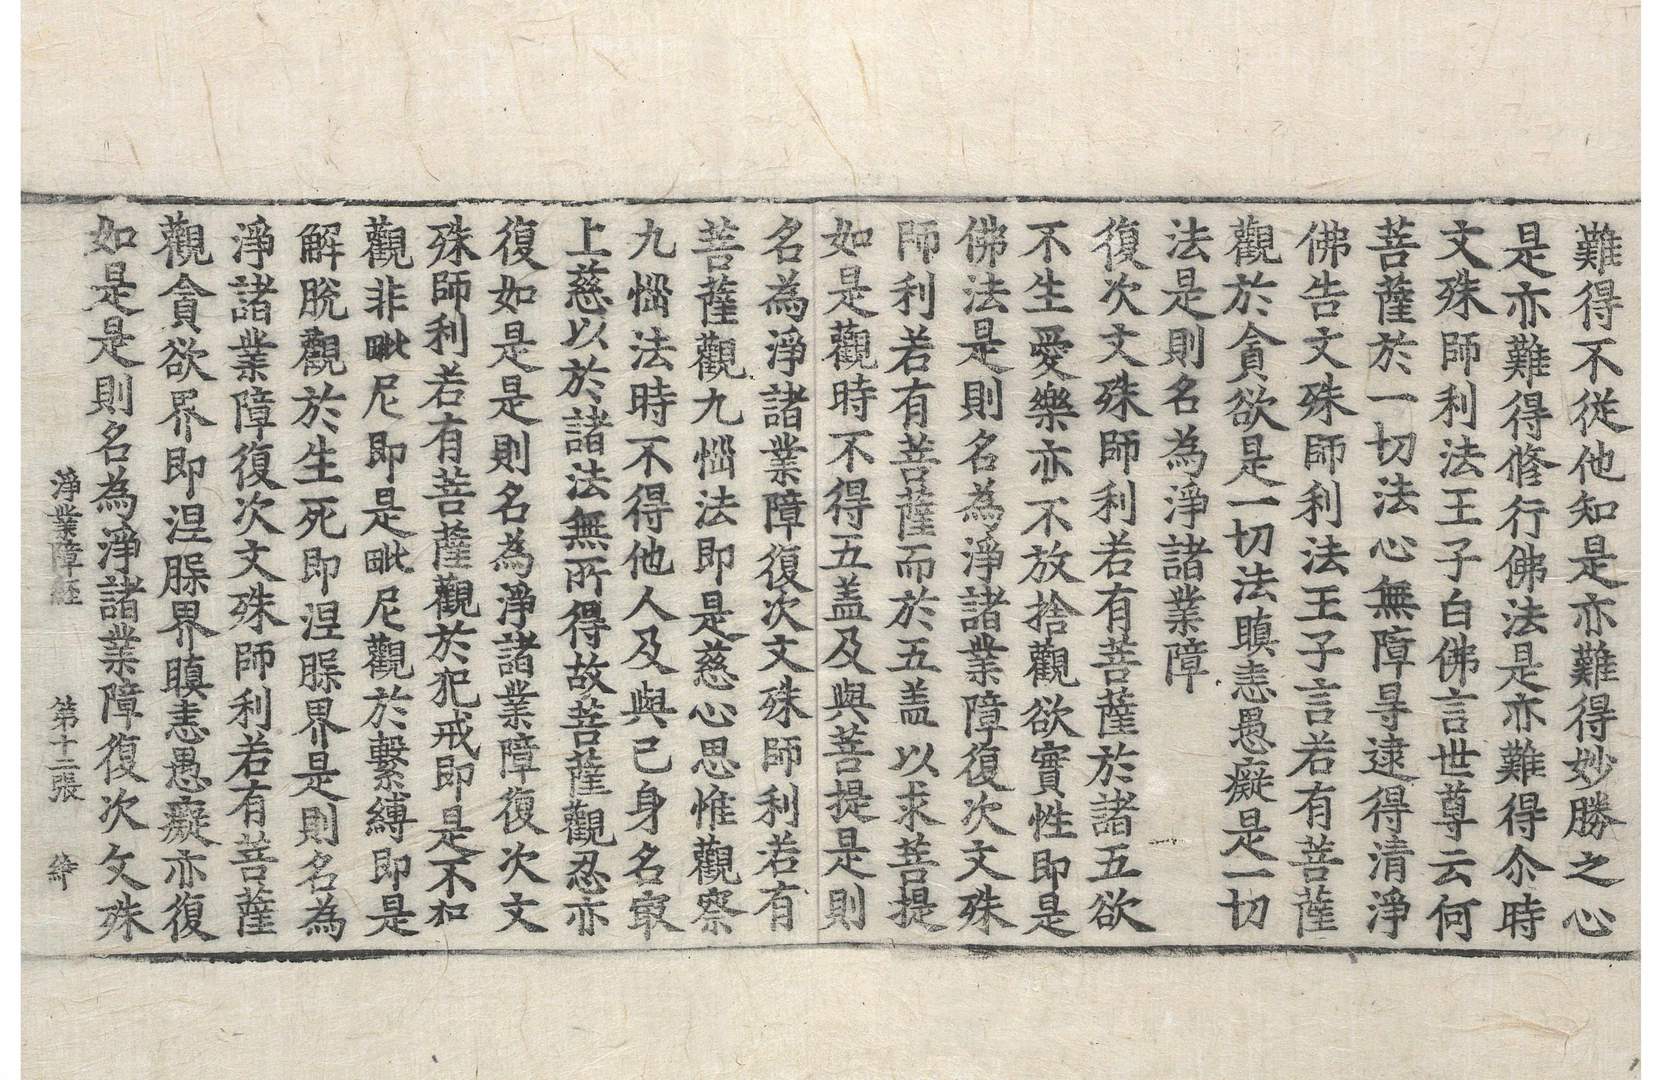 難得不從他知是亦難得妙勝之心
是亦難得修行佛法是亦難得尒時
文殊師利法王子白佛言世尊云何
菩薩於一切法心無障㝵逮得清淨
佛告文殊師利法王子言若有菩薩
觀於貪欲是一切法瞋恚愚癡是一切
法是則名為淨諸業障
復次文殊師利若有菩薩於諸五欲
不生愛樂亦不放捨觀欲實性即是
佛法是則名為淨諸業障復次文殊
師利若有菩薩而於五盖以求菩提
如是觀時不得五盖及與菩提是則
名為淨諸業障復次文殊師利若有
菩薩觀九惱法即是慈心思惟觀察
九惱法時不得他人及與己身名㝡
上慈以於諸法無所得故菩薩觀忍亦
復如是是則名為淨諸業障復次文
殊師利若有菩薩觀於犯戒即是不和
觀非毗尼即是毗尼觀於繫縛即是
解脫觀於生死即涅槃界是則名為
淨諸業障復次文殊師利若有菩薩
觀貪欲界即涅槃界瞋恚愚癡亦復
如是是則名為淨諸業障復次文殊
淨業障經 第十二張